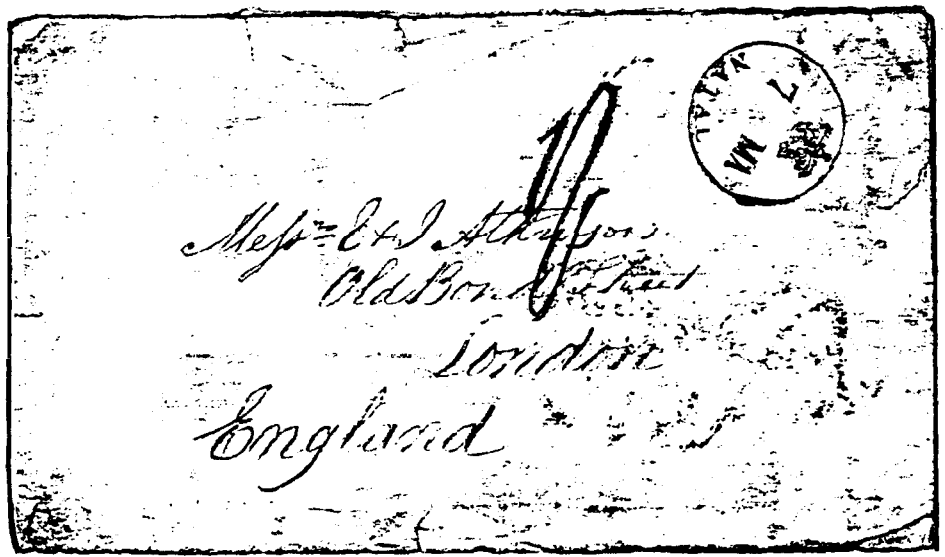 NATAL
7
MA
Messrs E & J Atkinson
Old Bond Street
London
England